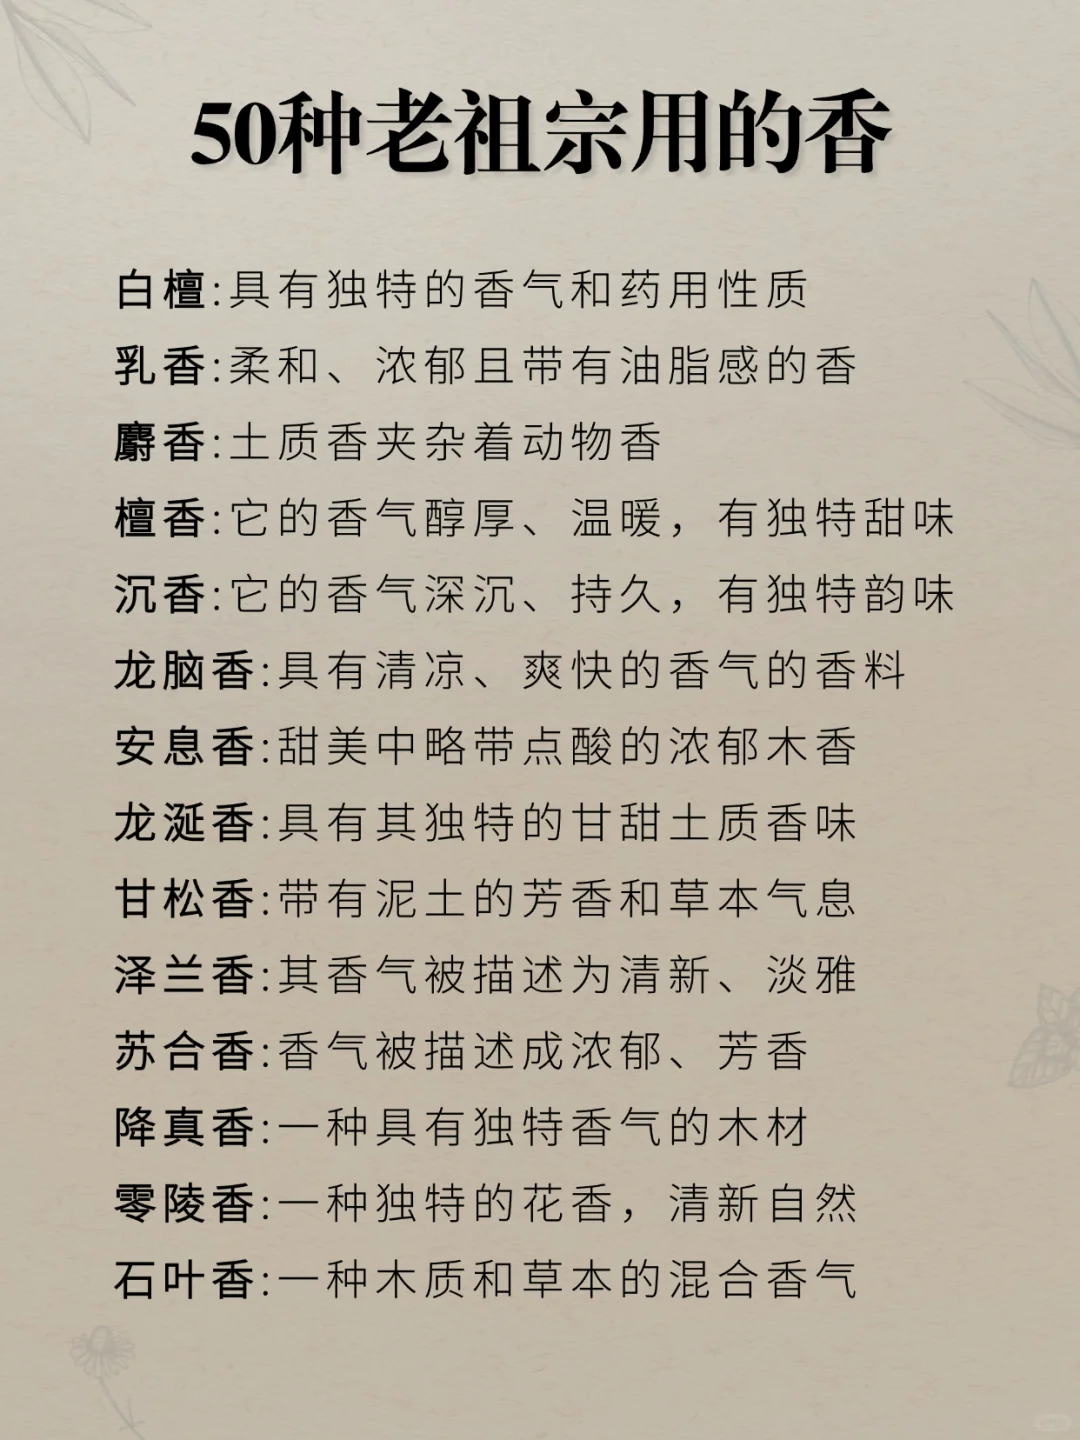 50种老祖宗用的香
白檀:具有独特的香气和药用性质
乳香:柔和、浓郁且带有油脂感的香
麝香:土质香夹杂着动物香
檀香:它的香气醇厚、温暖，有独特甜味
沉香:它的香气深沉、持久，有独特韵味
龙脑香:具有清凉、爽快的香气的香料
安息香:甜美中略带点酸的浓郁木香
龙涎香:具有其独特的甘甜土质香味
甘松香:带有泥土的芳香和草本气息
泽兰香:其香气被描述为清新、淡雅
苏合香:香气被描述成浓郁、芳香
降真香:一种具有独特香气的木材
零陵香:一种独特的花香，清新自然
石叶香:一种木质和草本的混合香气